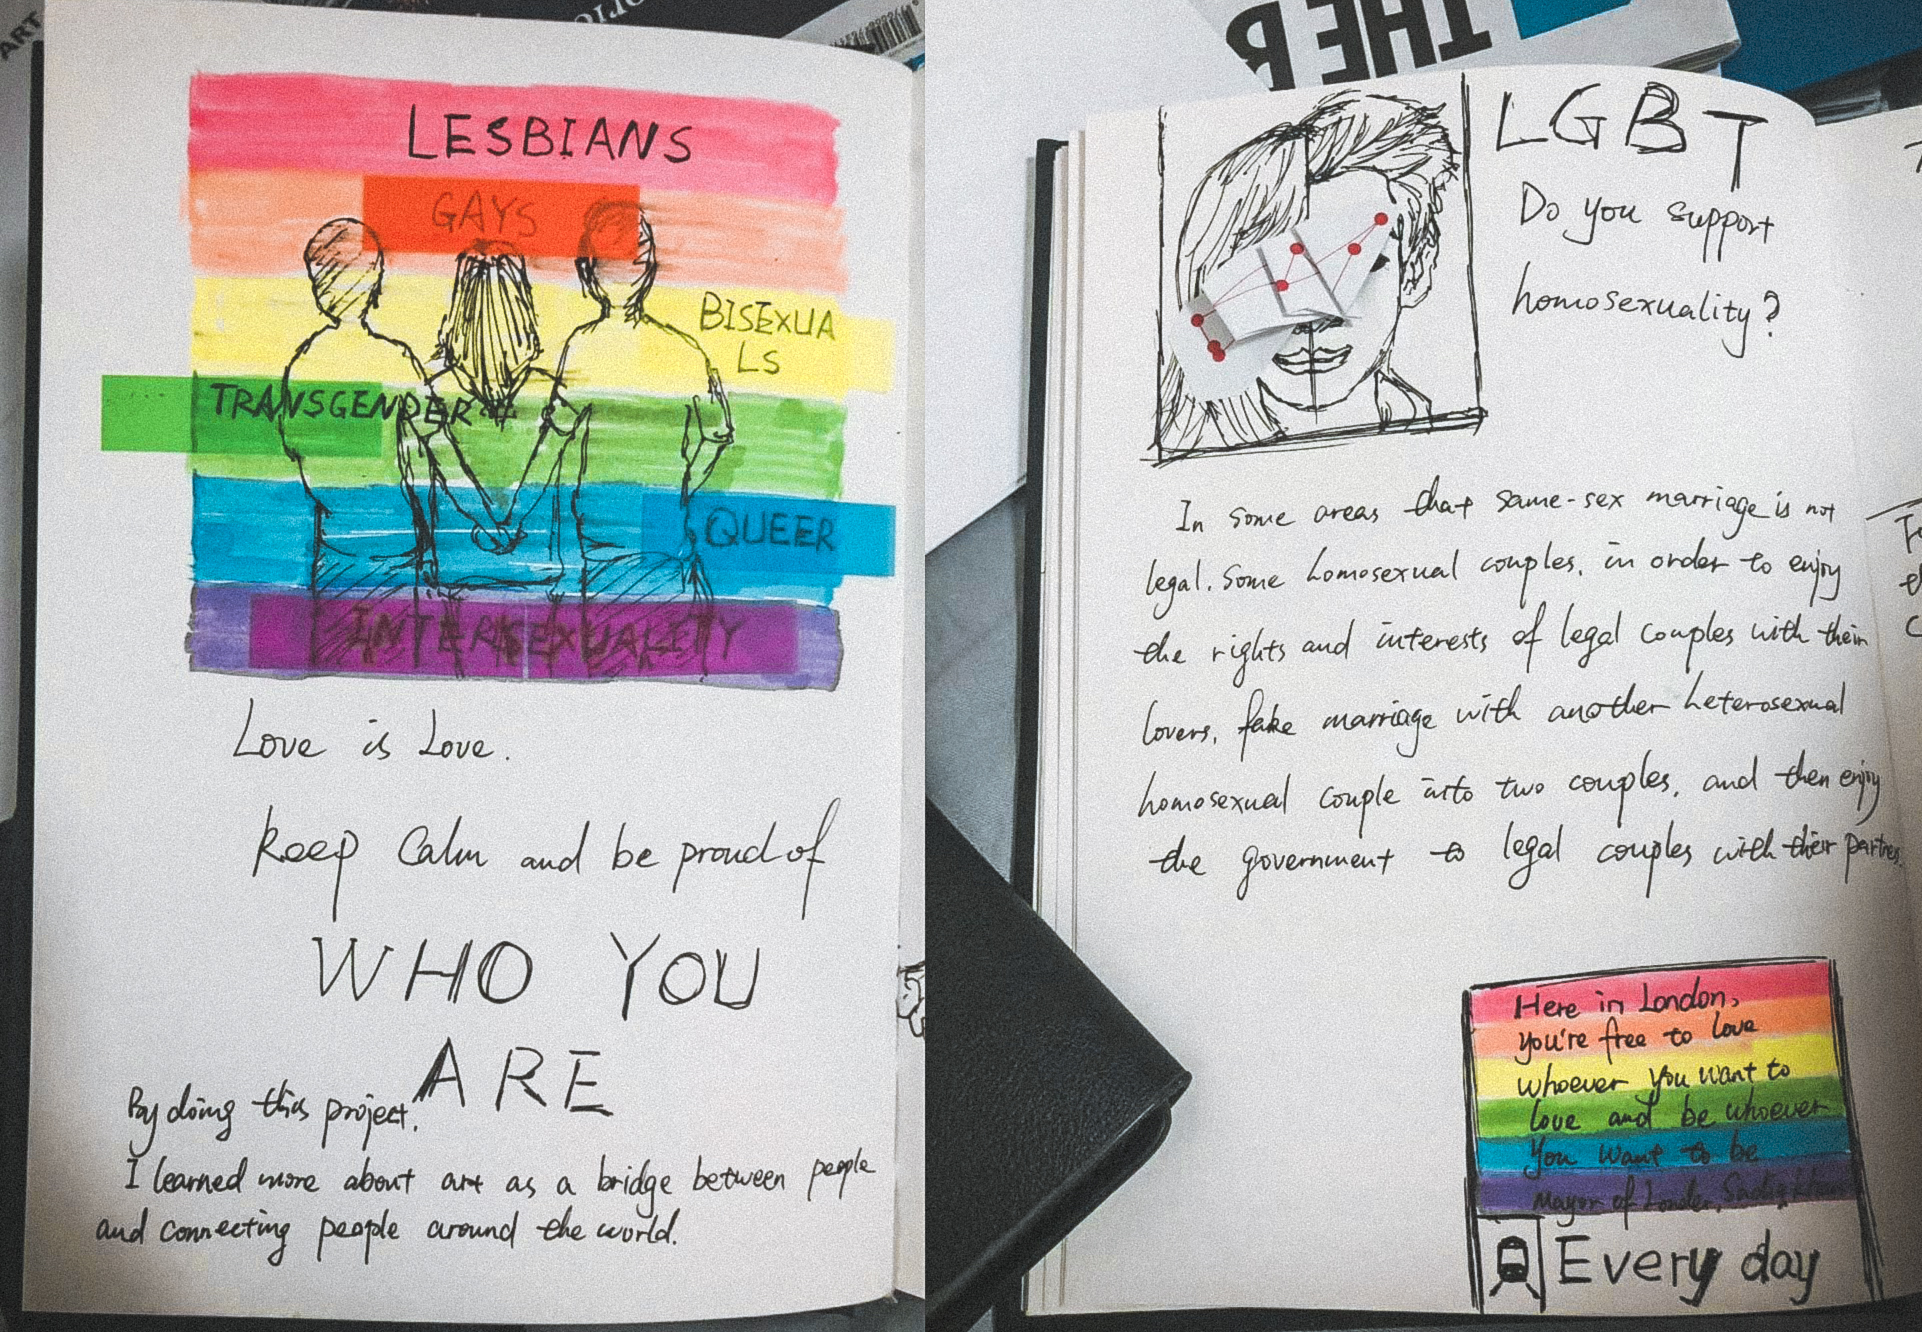 ART
LESBIANS
GAYS
BISEXUA
LS
TRANSGENDER
QUEER
INTERSEXUALITY
Love is Love.
keep Calm and be proud of
WHO YOU
ARE
By doing this project,
I learned more about art as a bridge between people
and connecting people around the world.
THE B
LGBT
Do you support
homosexuality?
In some areas that same-sex marriage is not
legal. Some homosexual couples, in order to enjoy
the rights and interests of legal couples with their
lovers, fake marriage with another heterosexual
homosexual couple into two couples, and then enjoy
the government to legal couples with their
Here in London,
you're free to love
whoever you want to
love and be whoever
you want to be
Mayor of London, Sadiq Khan
Every day